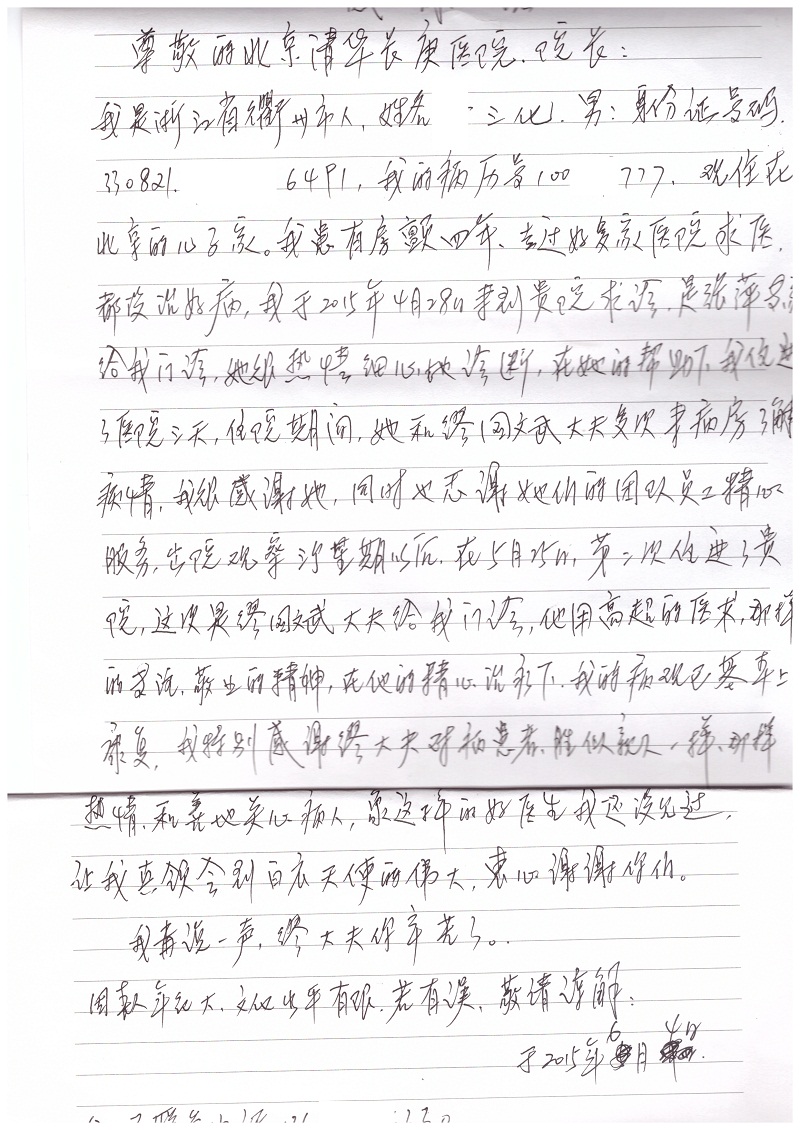 尊敬的北京清华长庚医院、院长：
我是浙江省衢州市人，姓名 三化．男：身份证号码．
330821. 6491，我的病历号100 777．现住在
北京的儿子家。我患有房颤四年、去过好多家医院求医．
都没治好病，我于2015年4月28日来到贵院求诊．是张萍
给我门诊，她很热情细心地诊断，在她的帮助下．我住进
了医院三天，住院期间，她和缪国文武大夫多次来病房了解
病情，我很感谢她，同时也感谢她们的团队员工精心
服务．出院观察 星期以后．在5月25日，第二次住进了贵
院，这次是缪国文武大夫给我门诊，他用高超的医术，那样
的 敬业的精神，在他的精心治疗下．我的病现已基本上
康复，我特别感谢缪大夫对病患者、胜似亲人一样、那样
热情．和善地关心病人，象这样的好医生我还没见过．
让我真领会到白衣天使的伟大，衷心谢谢你们。
我再说一声，缪大夫你辛苦了。
因 年纪大．文化水平有限．若有误．敬请谅解：
于2015年6月4日.